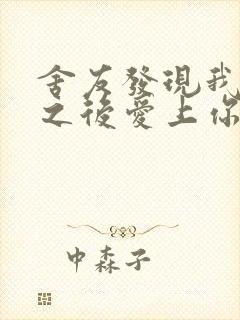 舍友發現我
之後愛上你
中森子